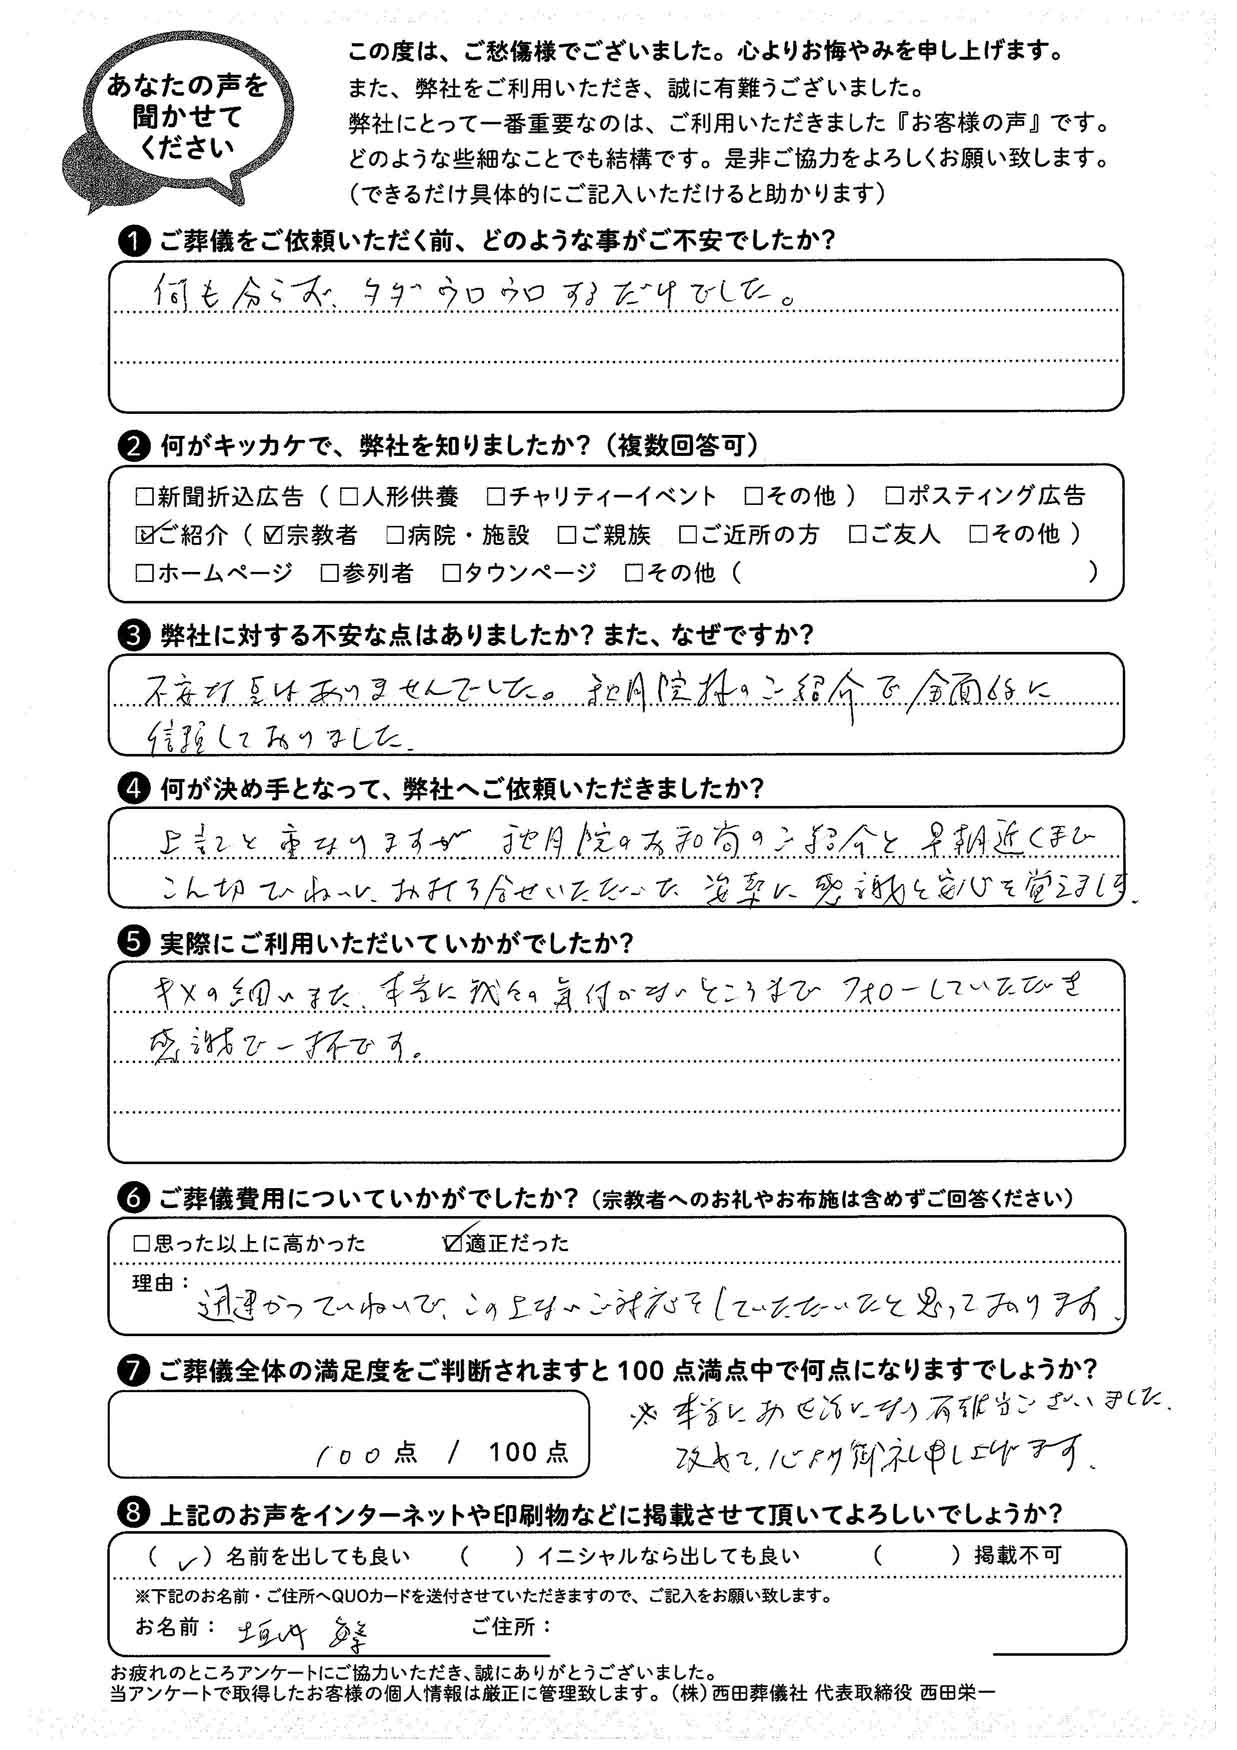 あなたの声を
聞かせて
ください
この度は、ご愁傷様でございました。心よりお悔やみを申し上げます。
また、弊社をご利用いただき、誠に有難うございました。
弊社にとって一番重要なのは、ご利用いただきました『お客様の声』です。
どのような些細なことでも結構です。是非ご協力をよろしくお願い致します。
（できるだけ具体的にご記入いただけると助かります）
❶ ご葬儀をご依頼いただく前、どのような事がご不安でしたか？
何も分らず、タダウロウロするだけでした。
❷ 何がキッカケで、弊社を知りましたか？（複数回答可）
□新聞折込広告（□人形供養 □チャリティーイベント □その他） □ポスティング広告
☑ご紹介（☑宗教者 □病院・施設 □ご親族 □ご近所の方 □ご友人 □その他）
□ホームページ □参列者 □タウンページ □その他（ ）
❸ 弊社に対する不安な点はありましたか？また、なぜですか？
不安な点はありませんでした。 月院様のご紹介で全面的に
信頼しておりました。
❹ 何が決め手となって、弊社へご依頼いただきましたか？
上記と重なりますが、 月院のお和尚のご紹介と早朝近くまで
こん切ていねいに、お打ち合せいただいた姿勢に感謝と安心を覚えました。
❺ 実際にご利用いただいていかがでしたか？
キメの細い また、本当に我々の気付かないところまでフォローしていただき
感謝で一杯です。
❻ ご葬儀費用についていかがでしたか？（宗教者へのお礼やお布施は含めずご回答ください）
□思った以上に高かった ☑適正だった
理由：
迅速かつていねいで、この上ないご対応をしていただいたと思っております。
❼ ご葬儀全体の満足度をご判断されますと100点満点中で何点になりますでしょうか？
100点 / 100点
※本当にお世話になり有難うございました。
改めて、心より御礼申し上げます。
❽ 上記のお声をインターネットや印刷物などに掲載させて頂いてよろしいでしょうか？
（✓）名前を出しても良い （ ）イニシャルなら出しても良い （ ）掲載不可
※下記のお名前・ご住所へQUOカードを送付させていただきますので、ご記入をお願い致します。
お名前： 垣内 ご住所：
お疲れのところアンケートにご協力いただき、誠にありがとうございました。
当アンケートで取得したお客様の個人情報は厳正に管理致します。（株）西田葬儀社 代表取締役 西田栄一